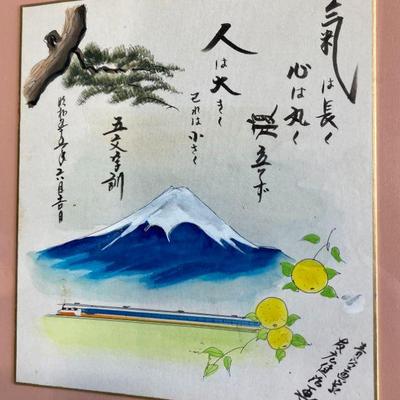 氣は長く
心は丸く
腹立てず
人は大きく
己れは小さく
五文字訓
昭和五十五年六月吉日